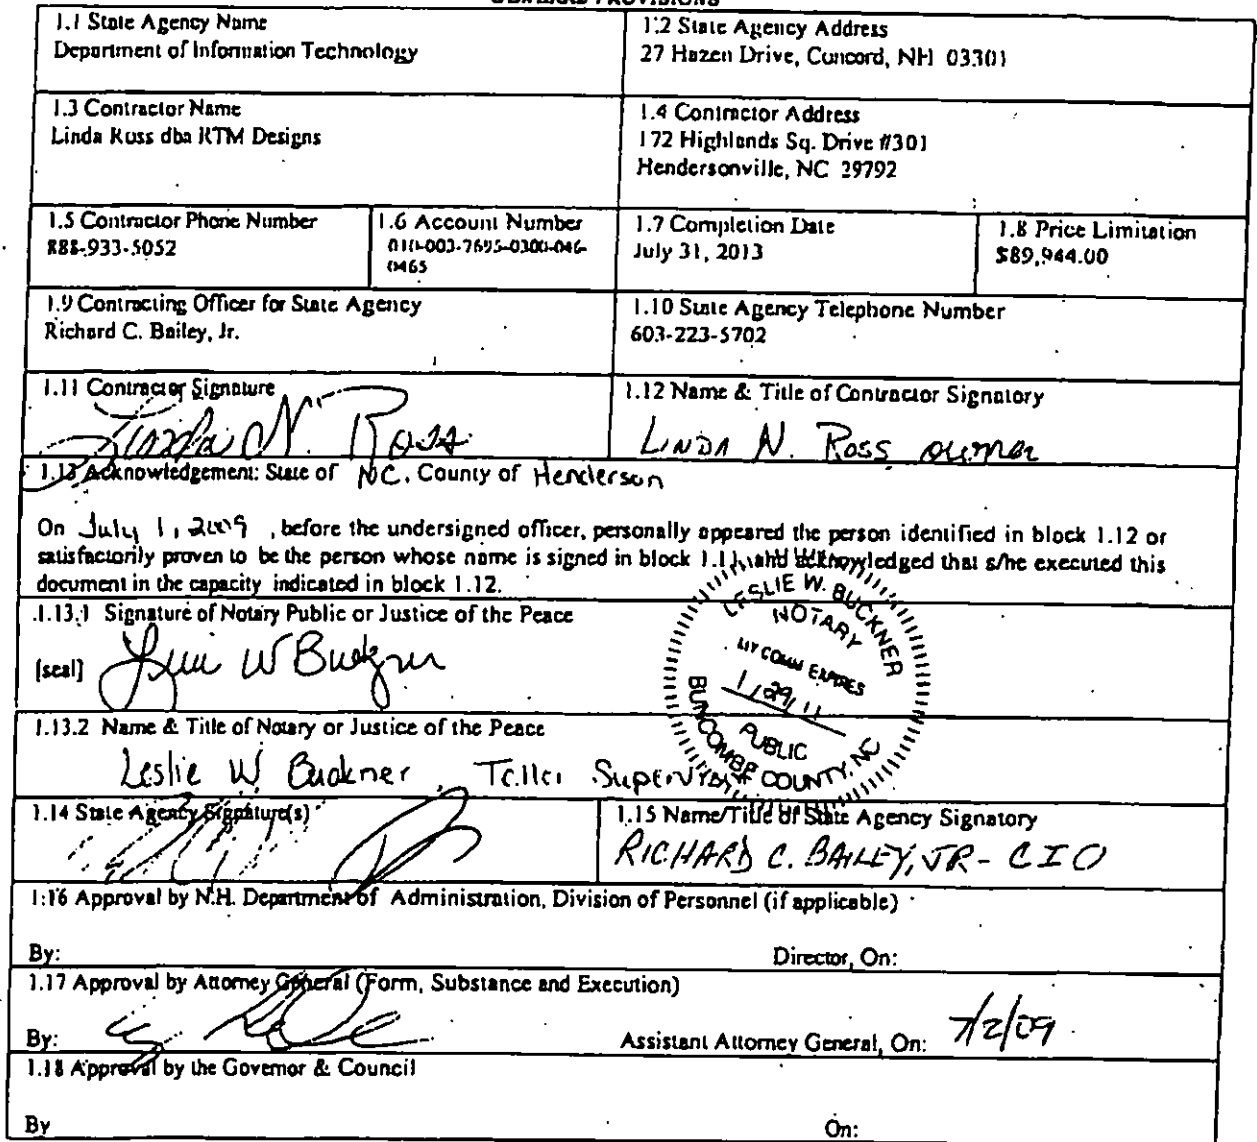 GENERAL PROVISIONS
1.1 State Agency Name
Department of Information Technology
1.2 State Agency Address
27 Hazen Drive, Concord, NH 03301
1.3 Contractor Name
Linda Ross dba RTM Designs
1.4 Contractor Address
172 Highlands Sq. Drive #301
Hendersonville, NC 29792
1.5 Contractor Phone Number
888-933-5052
1.6 Account Number
010-003-7695-0300-046-
0465
1.7 Completion Date
July 31, 2013
1.8 Price Limitation
$89,944.00
1.9 Contracting Officer for State Agency
Richard C. Bailey, Jr.
1.10 State Agency Telephone Number
603-223-5702
1.11 Contractor Signature
Linda N. Ross
1.12 Name & Title of Contractor Signatory
LINDA N. Ross owner
1.13 Acknowledgement: State of NC, County of Henderson
On July 1, 2009, before the undersigned officer, personally appeared the person identified in block 1.12 or
satisfactorily proven to be the person whose name is signed in block 1.11, and acknowledged that s/he executed this
document in the capacity indicated in block 1.12.
1.13.1 Signature of Notary Public or Justice of the Peace
[seal]
Leslie W Buckner
LESLIE W. BUCKNER
NOTARY
MY COMM EXPIRES
1/29/11
PUBLIC
BUNCOMBE COUNTY, NC
1.13.2 Name & Title of Notary or Justice of the Peace
Leslie W Buckner, Teller Supervisor
1.14 State Agency Signature(s)
1.15 Name/Title of State Agency Signatory
RICHARD C. BAILEY, JR - CIO
1.16 Approval by N.H. Department of Administration, Division of Personnel (if applicable)
By: Director, On:
1.17 Approval by Attorney General (Form, Substance and Execution)
By: Assistant Attorney General, On: 7/2/09
1.18 Approval by the Governor & Council
By On: